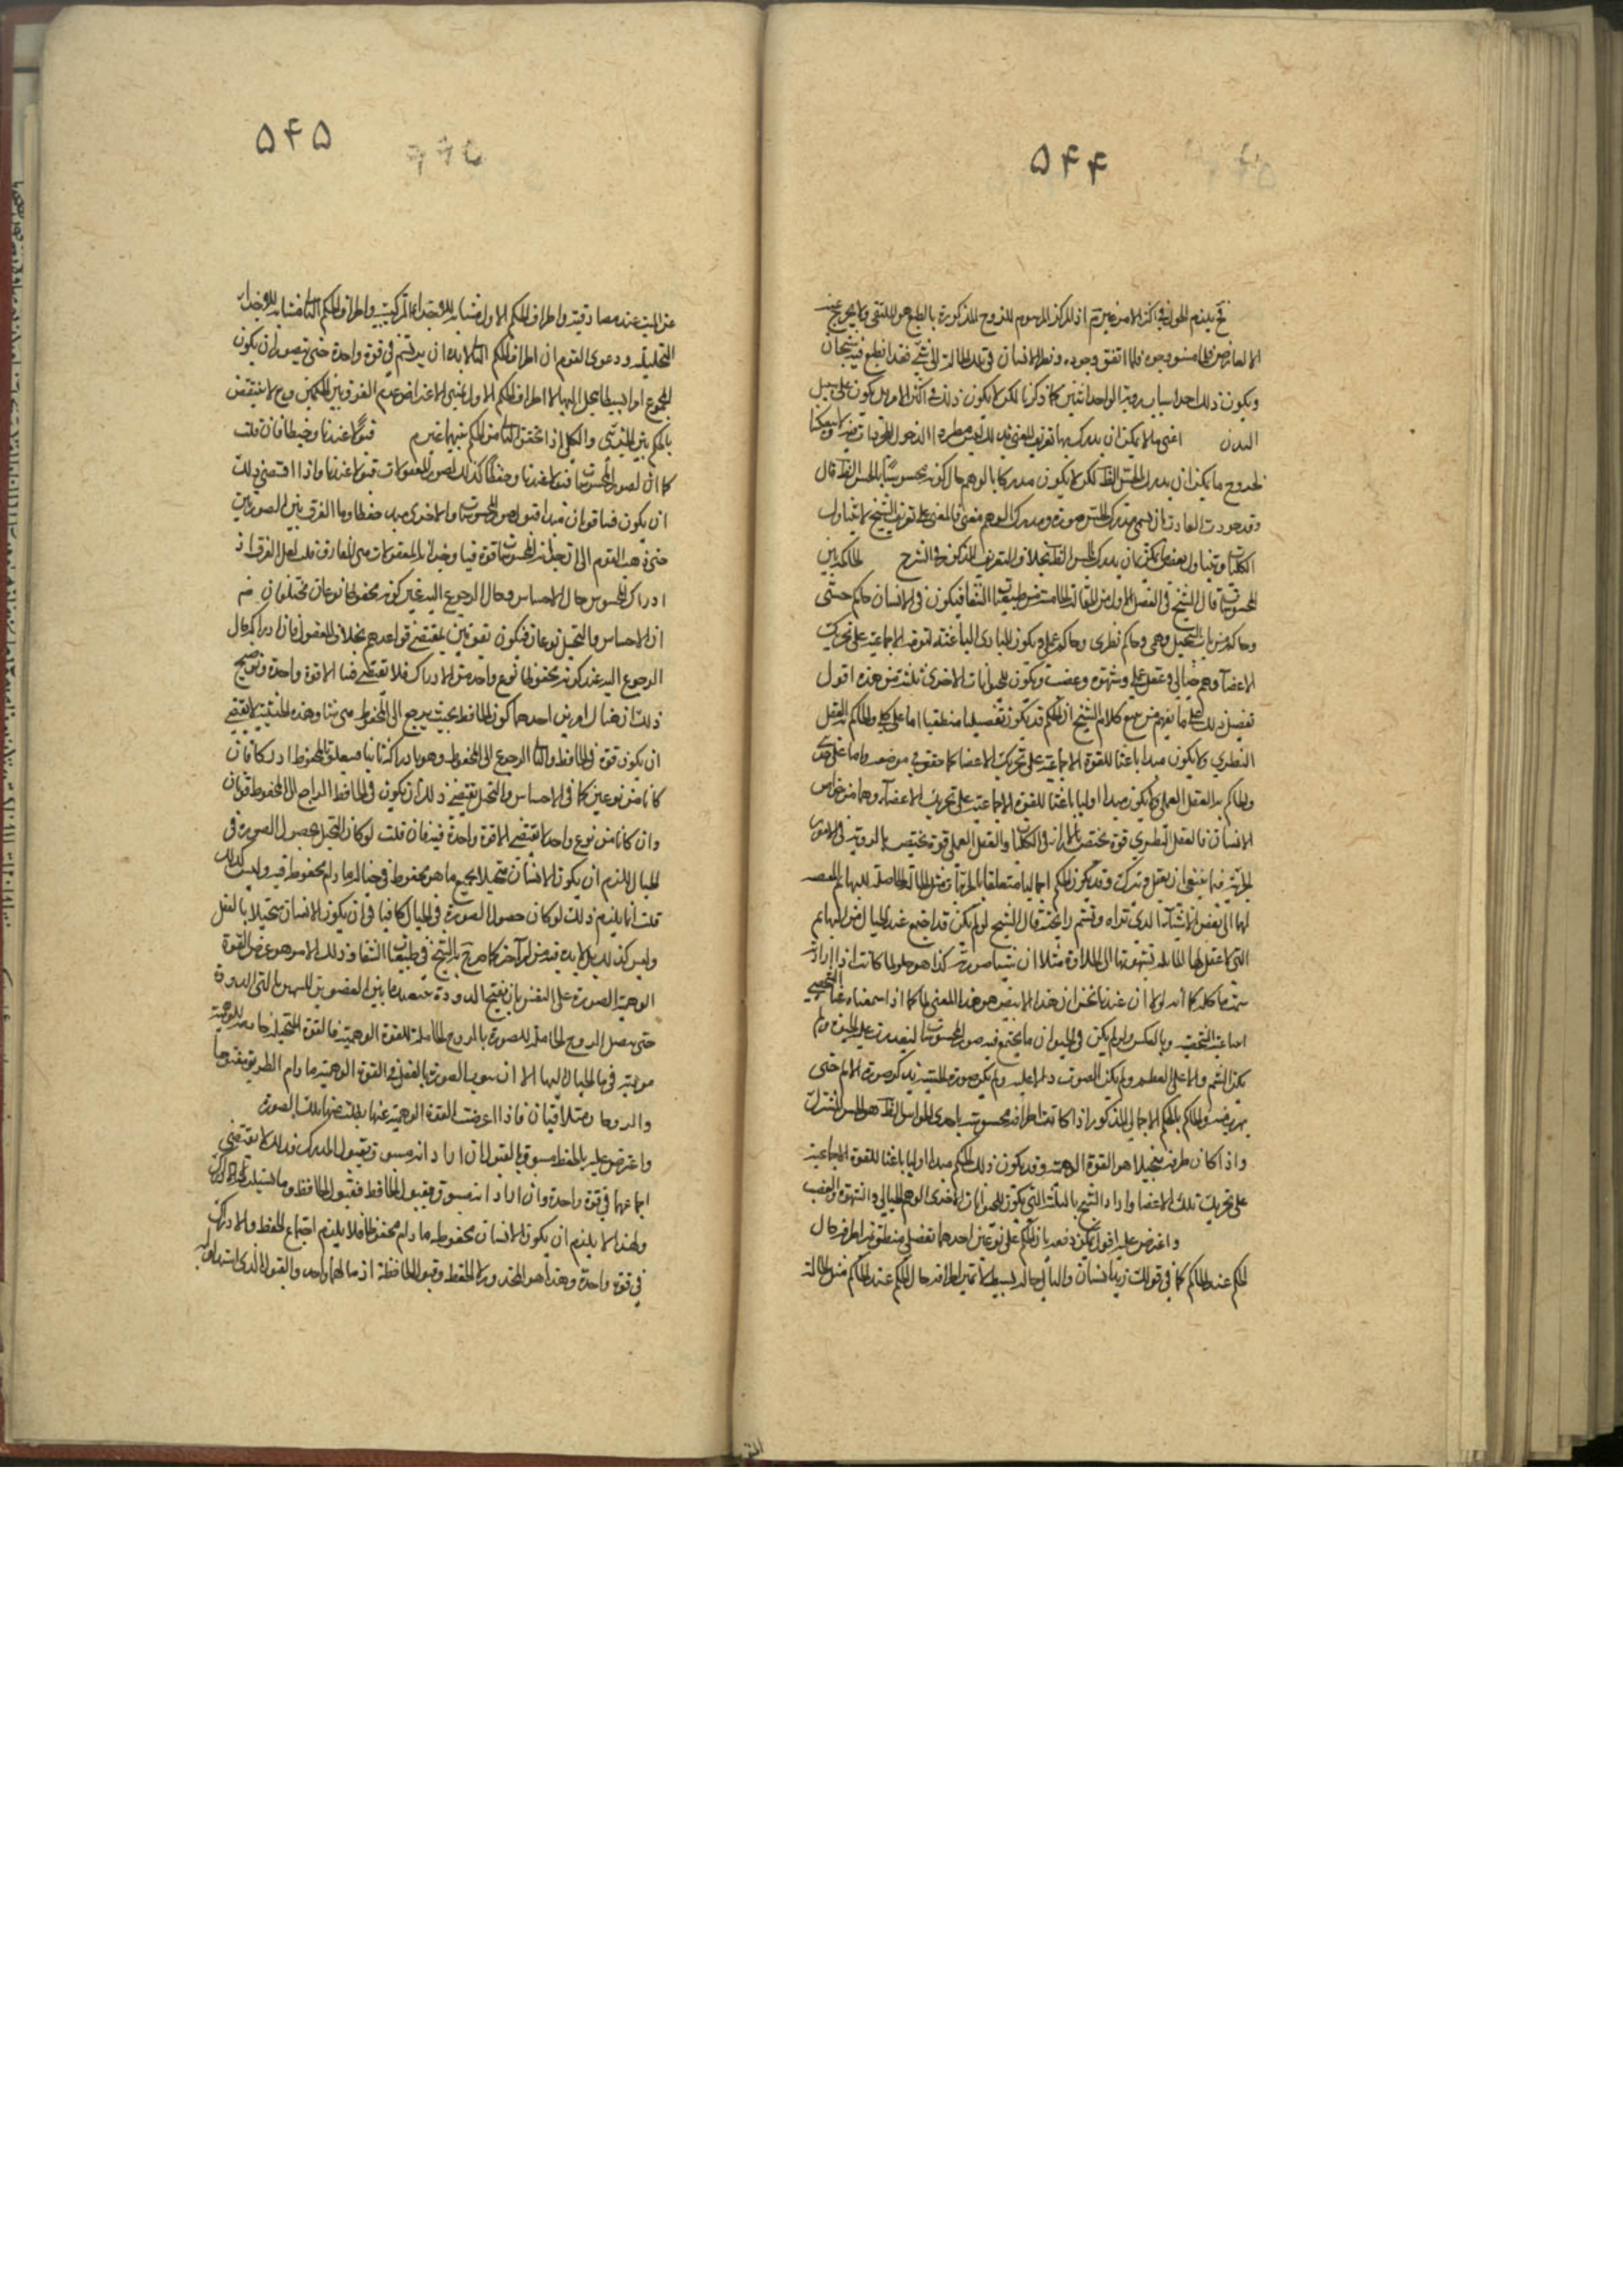 ۵۴۴
فح يلزم الحول في اكثر الامر غير تم اذ المركز المرسوم للزوج المذكورة بالطبع هو الملتقى ولا يخرج عنه
الا لعارض فلما اتفق وجوده ونظر الانسان في تلك الحالة الى شيء فقد انطبع فيه شبحان
ويكون ذلك احد اسباب روية الواحد اثنين كما ذكرنا لكن لا يكون ذلك في اكثر الامر بل يكون على سبيل
البدن اعني ما لا يمكن ان يدرك بها
لخروج ما يمكن ان يدرك بالحس الظ لكن لا يكون مدركا بالوهم حال كونه محسوسا بالحس الظ قال
وقد جرت العادة بان يسمى مدرك الحس صورة ومدرك الوهم معنى فالمعنى على تعريف الشيخ لا يتناول
الكليات ويتناول بعض ما يمكن ان يدرك بالحس الظ بخلاف التعريف المذكور في الشرح
قال الشيخ في الفصل الاول من المقالة الخامسة من طبيعيات الشفا فيكون في الانسان حاكم حسي
وحاكم من باب التخيل وهمي وحاكم نظري وحاكم عملي ويكون المبادي الباعثة لقوته الاجماعية على تحريك
الاعضآ وهم خيالي وعقل عملي وشهوة وغضب ويكون للحيوانات الاخرى ثلثة من هذه اقول
تفصيل ذلك على ما يفهم من جميع كلام الشيخ ان الحكم قد يكون تفصيليا منطقيا اما على كلي والحاكم به العقل
النظري ولا يكون مبدا باعثا للقوة الاجماعية على تحريك الاعضا كما حقق في موضعه واما على جزئي
والحاكم به العقل العملي ويكون مبدا اوليا باعثا للقوة الاجماعية على تحريك الاعضآ وهما من خواص
الانسان فالعقل النظري قوة تختص بالراى في الكليات والعقل العملي قوة تختص بالروية في الامور
الجزئية فيما ينبغي ان يفعل ويترك وقد يكون الحكم اجماليا متعلقا بالجزئيات مثل الحالة الحاصلة للبهايم
لها الى بعض الاشيآء الذي تراه وتشم رايحته قال الشيخ لو لم يكن قد اجتمع عند الخيال من البهايم
التي لا عقل لها المايلة بشهوتها الى الحلاوة مثلا ان شيئا صورته كذا هو حلو لما كانت اذا راته
همت باكله كما انه لولا ان عندنا نحن ان هذا الابيض هو هذا المغني لما كنا اذا سمعنا غناه الشخصي
اثبتنا عينه الشخصية وبالعكس ولو لم يكن في الحيوان ما يجتمع فيه صور المحسوسات لتعذرت عليه الحيوة ولم
يكن الشم دالا على الطعم ولم يكن الصوت دالا عليه ولم يكن صورة الخشبة تذكره صورة الالم حتى
يهرب منه والحاكم بالحكم الاجمالي المذكور اذا كانت اطرافه محسوسة باحدى الحواس الظ هو الحس المشترك
واذا كان طرفه متخيلا هو القوة الوهمية وقد يكون ذلك الحكم مبدا اوليا باعثا للقوة الاجماعية
على تحريك تلك الاعضا واراد الشيخ بالثلثة التي يكون للحيوانات الاخرى الوهم الخيالي والشهوة والغضب
واعترض عليه اقول يمكن دفعه بان الحكم على نوعين احدهما تفصيلي منطقي اطرافه حال
الحكم عند الحاكم كما في قولك زيد انسان والثاني اجمالي بسيط لا تميز اطرافه حال الحكم عند الحاكم مثل الحالة
۵۴۵
واطراف الحكم الاول مشابه للاجزاء التركيبية واطراف الحكم الثاني مشابه للاجزاء
التحليلية ودعوى القوم ان اطراف الحكم الثاني لا بد ان يرتسم في قوة واحدة حتى يتصور ان يكون
المجموع امرا بسيطا ينحل اليها لا اطراف الحكم الاول فمبنى الاعتراض عدم الفرق بين الحكمين وح لا ينتقض
بالحكم بين الجزئي والكلي اذا تحقق الثاني من الحكم فيهما غير م قبولا عندنا وحفظا فان قلت
كما ان لصور المحسوسات قبولا عندنا وحفظا كذلك لصور المعقولات قبولا عندنا واذا اقتضى ذلك
ان يكون فينا قوتان مبدا قبول صور المحسوسات والاخرى مبدا حفظها وما الفرق بين الصورتين
حتى ذهب القوم الى ان خزانة المحسوسات قوة فينا وخزانة المعقولات هي المفارق قلت لعل الفرق ان
ادراك المحسوس حال الاحساس وحال الرجوع اليه عند كونه محفوظا نوعان مختلفان
اذ الاحساس والتخيل نوعان فيكون بقوتين بمقتضى قواعدهم بخلاف المعقول فان ادراكه حال
الرجوع اليه عند كونه محفوظا نوع واحد من الادراك فلا يقتضي فينا الا قوة واحدة وتوضيح
ذلك ان هنا امرين احدهما كون الحافظ بحيث يرجع الى المحفوظ متى شا وهذه الحيثية لا تقتضي
ان يكون قوة في الحافظ والثاني الرجوع الى المحفوظ وهو ادراكه ثانيا فمتعلق المحفوظ ادراكان فان
كانا من نوعين كما في الاحساس والتخيل يقتضي ذلك ان يكون في الحافظ الراجع الى المحفوظ قوتان
وان كانا من نوع واحد لا يقتضي الا قوة واحدة فيه فان قلت لو كان التخيل بحصول الصورة في
الخيال لزم ان يكون الانسان متخيلا بجميع ما هو محفوظ في خياله ما دام محفوظا فيه وليس كذلك
قلت انما يلزم ذلك لو كان حصول الصورة في الخيال كافيا في ان يكون الانسان متخيلا بالفعل
وليس كذلك بل لا بد فيه من امر آخر كما صرح به الشيخ في طبيعيات الشفا وذلك الامر هو عرض القوة
الوهمية الصورة على النفس بان يفتح الدودة بين العضوين المسميين بالتي الدودة
حتى يتصل الروح الحاملة للصورة بالروح الحاملة للقوة الوهمية فالقوة المتخيلة خادمة للوهمية
مودية في ما الخيال اليها الا ان ثبوت الصورة بالفعل في القوة الوهمية ما دام الطريق مفتوحا
والروحان متلاقيان فاذا اعرضت القوة الوهمية عنها بطلت عنها تلك الصورة
واعترض عليه بالحفظ مسبوق بالقبول ان اراد انه مسبوق بقبول المدرك فذلك لا يقتضي
اجتماعهما في قوة واحدة وان اراد انه مسبوق بقبول الحافظ فقبول الحافظ
ولهذا لا يلزم ان يكون الانسان بمحفوظه ما دام محفوظا فلا يلزم اجتماع الحفظ والادراك
في قوة واحدة وهذا هو المحذور لا الحفظ وقبول الحافظة اذ مآلهما واحد والقبول الذي استدل به